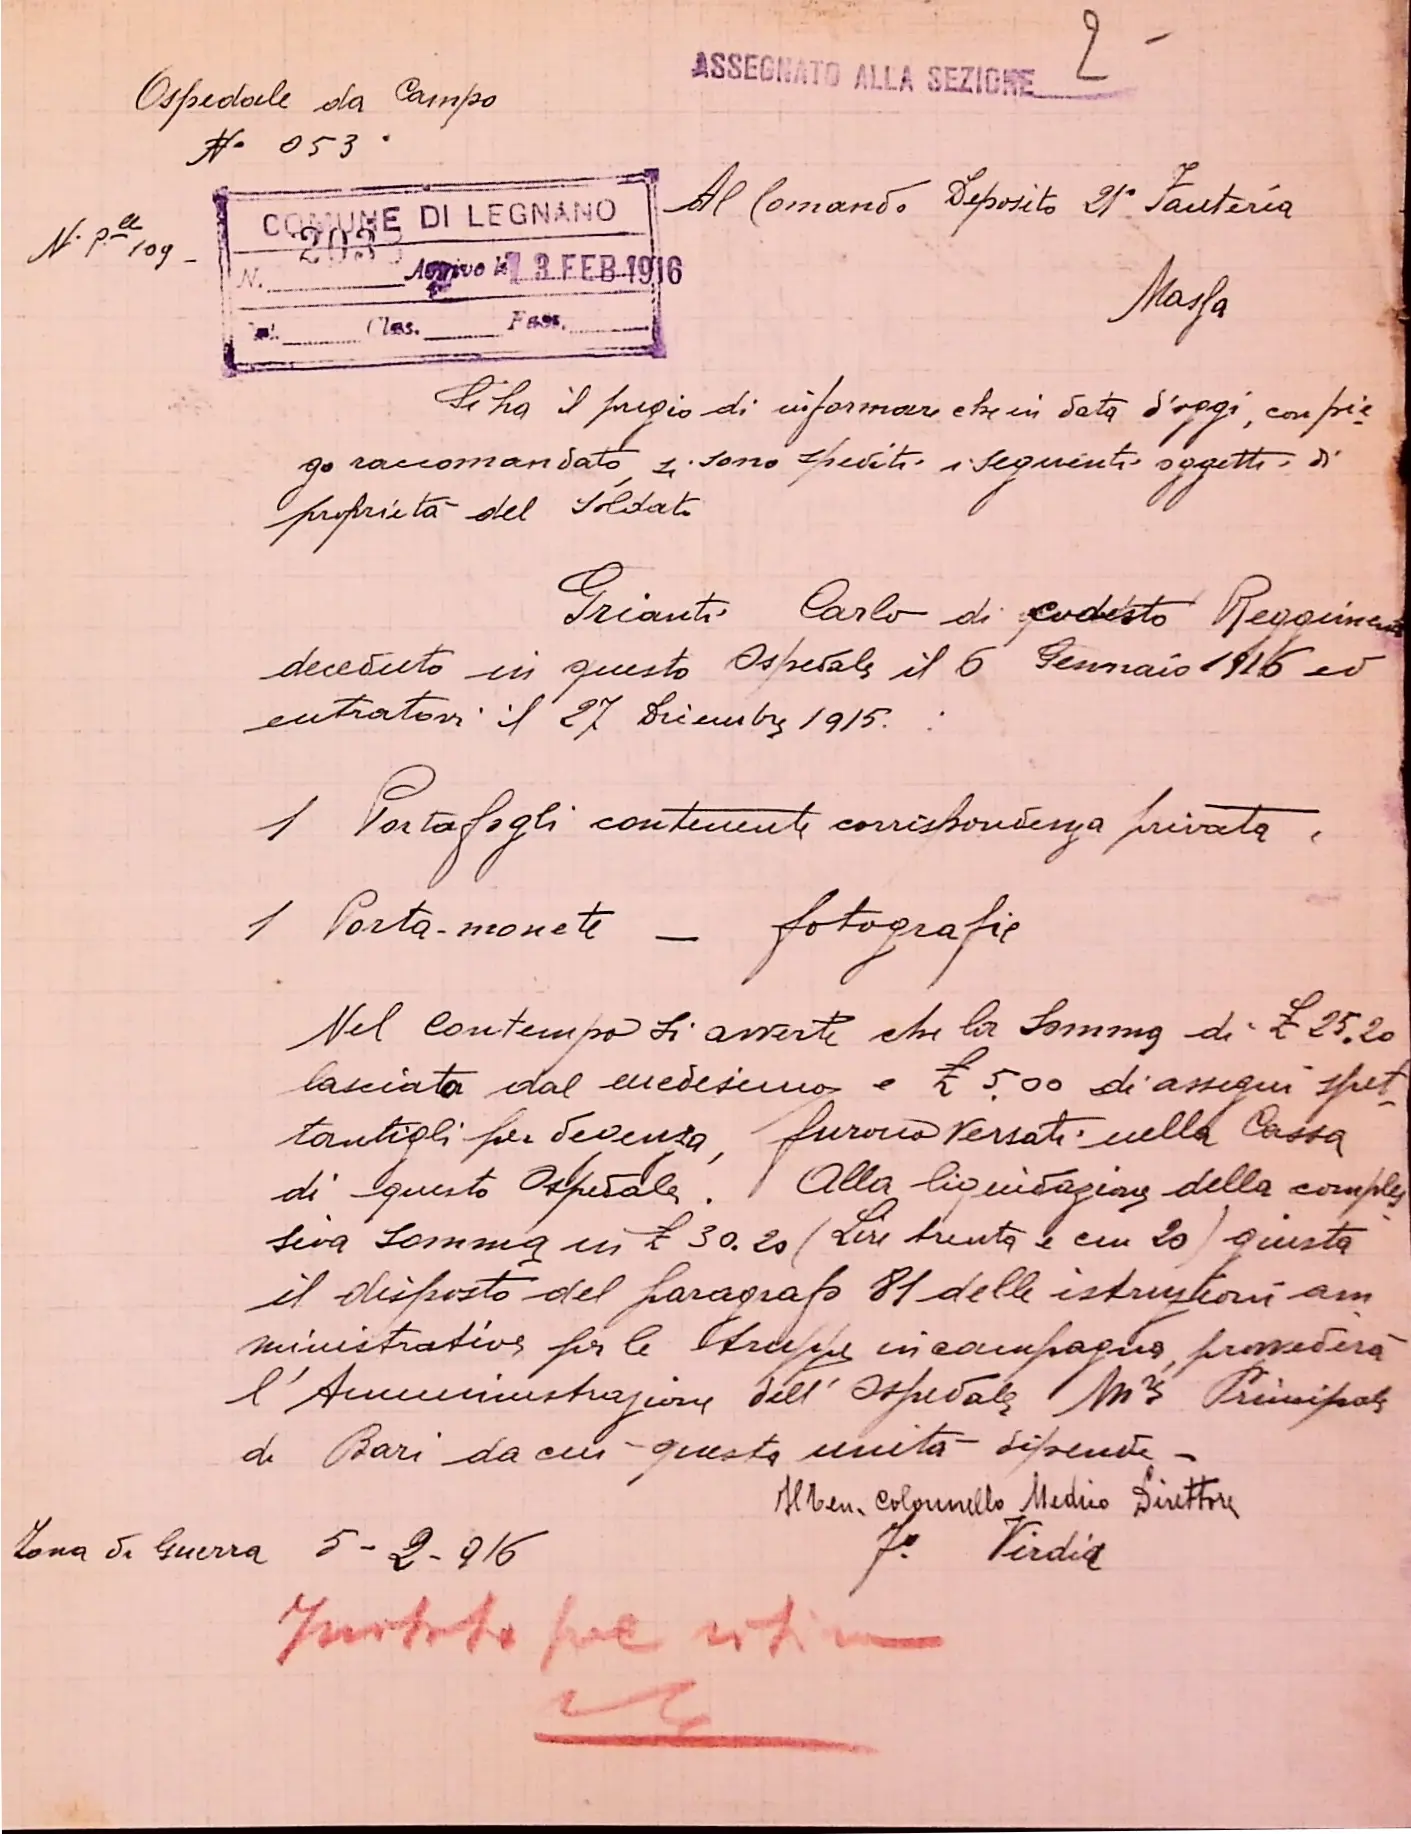 ASSEGNATO ALLA SEZIONE 2 -
Ospedale da Campo
N. 053.
N. P.lle 109 -
COMUNE DI LEGNANO
N. 2035 Arrivo il 13 FEB 1916
Cat. Clas. Fasc.
Al Comando Deposito 21° Fanteria
Massa
Si ha il pregio di informare che in data d'oggi, con pie-
go raccomandato, si sono spediti i seguenti oggetti di
proprietà del soldato
Grianti Carlo di codesto Reggimento
deceduto in questo Ospedale il 6 Gennaio 1916 ed
entratovi il 27 Dicembre 1915. :
1 Portafogli contenente corrispondenza privata.
1 Porta-monete — fotografie
Nel contempo si avverte che la somma di £ 25.20
lasciata dal medesimo e £ 5.00 di assegni spet-
tantigli per decenza, furono versati nella Cassa
di questo Ospedale. Alla liquidazione della comples
siva somma in £ 30.20 (Lire trenta e cen 20) giusta
il disposto del paragrafo 81 delle istruzioni am
ministrative per le truppe in campagna, provvederà
l'Amministrazione dell'Ospedale Mre Principale
di Bari da cui questa unità dipende -
Il Ten. Colonnello Medico Direttore
Zona di Guerra 5-2-916
F° Virdia